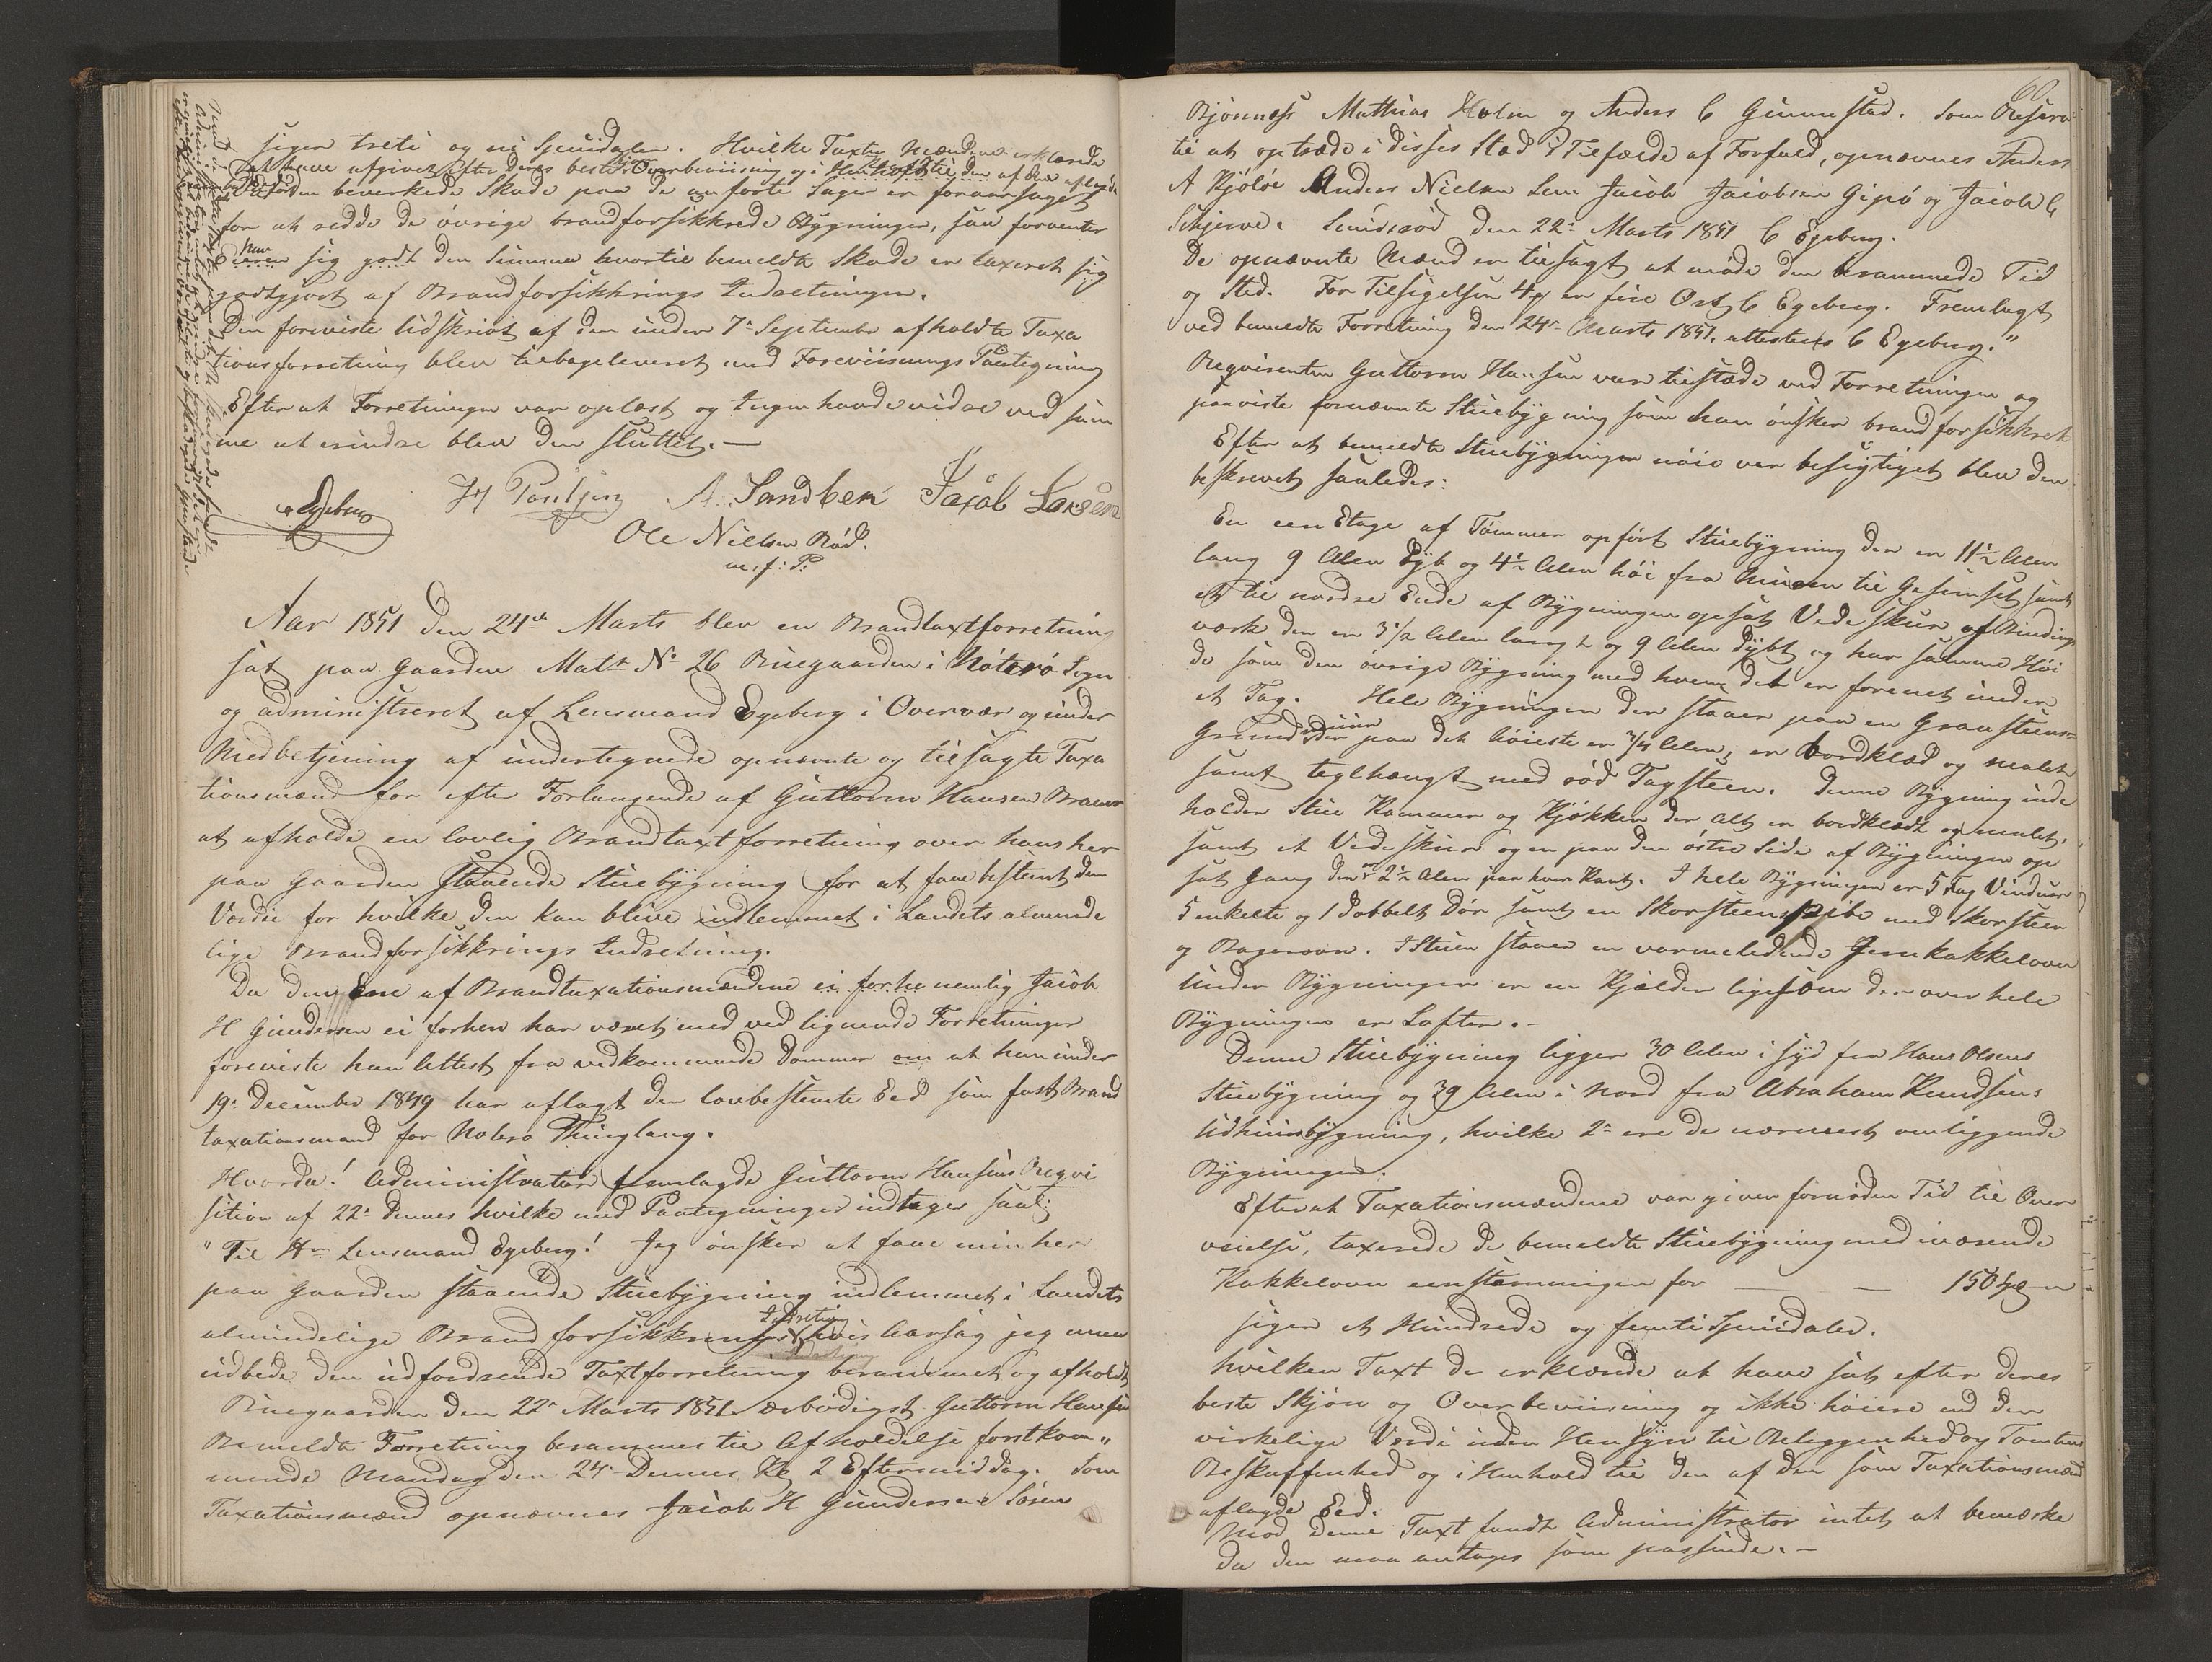 siger treti og ni Speindaler. Hvilke Taxter Mændene erklærede
at have afgivet efter deres beste Overbeviisning og i Henhold til den af dem aflagte
Ed
bevirkede Skade paa de anførte Sager er foraarsaget
for at redde de øvrige brandforsikkrede Bygninger, saa forventer
sig godt den Summa hvortil bemeldte Skade er taxeret sig
godtgjort af Brandforsikkrings Indretningen.
Den foreviste Udskrivt af den under 7de September afholdte Taxa
tionsforretning blev tilbageleveret med Foreviisnings Paategning
Efterat Forretningen var oplæst og Ingen havde vidre ved sam
me at erindre blev den sluttet. —
Egeberg A. Sandbek Jacob Larsen
Ole Nielsen Rød.
m. f: P:
Aar 1851 den 24de Marts blev en Brandtaxtforretning
sat paa Gaarden Matr No 26 Buegaarden i Nøterø Sogn
og administreret af Lensmand Egeberg i Overvær og under
Medbetjening af undertegnede opnævnte og tilsagte Taxa
tionsmænd for efter Forlangende af Guttorm Hansen
at afholde en lovlig Brandtaxtforretning over hans her
paa Gaarden staaende Stuebygning for at faae bestemt den
Værdie for hvilke den kan blive indlemmet i Landets alminde
lige Brandforsikkrings Indretning.
Da den Ene af Brandtaxationsmændene ei forhe nemlig Jacob
H Gundersen ei forhen har været med ved lignende Forretninger
foreviste han Attest fra vedkommende Dommer om at han under
19de December 1849 har aflagt den lovbestemte Eed som fast Brand
taxationsmand for Nøterø Thinglaug.
Hvorda! Administrator fremlagde Guttorm Hansens Reqvi
sition af 22de Dennes hvilke med Paategninger indtages saal:
" Til Hr Lensmand Egeberg! Jeg ønsker at faae min her
paa Gaarden staaende Stuebygning indlemmet i Landets
almindelige Brandforsikkrings Indretning hvis Aarsag jeg maa
udbede den udfordrende Taxtforretning berammet og afholdt
Buegaarden den 22de Marts 1851 ærbødigst Guttorm Hansen
Bemeldte Forretning berammes til Afholdelse førstkom„
mende Mandag den 24de Dennes Kl 2 Eftermiddag. Som
Taxationsmænd opnævnes Jacob H Gundersen Søren
60.
Bjønness Mathias Holm og Anders C Gunnestad. Som Reserve
til at optræde i disses Sted i Tilfælde af Forfald, opnævnes Anders
A Kjøløe Anders Nielsen Lun Jacob Jacobsen Gipø og Jacob C
Schjerve. Sundrød den 22de Marts 1851 C Egeberg.
De opnævnte Mænd er tilsagt at møde den berammede Tid
og Sted. For Tilsigelsen 4 er fire Ort C Egeberg. Fremlagt
ved bemeldte Forretning den 24de Marts 1851. attesteres C Egeberg."
Reqvirenten Guttorm Hansen var tilstæde ved Forretningen og
paaviste fornævnte Stuebygning som han ønsker brandforsikkret
Efter at bemeldte Stuebygningen nøie var besigtiget blev den
beskrevet saaledes:
En een Etage af Tømmer opført Stuebygning der er 11½ Alen
lang 9 Alen Dyb og 4½ Alen høi fra Muren til Gesimset samt
et til nordre Ende af Bygningen opsat Vedeskuur af Bindings
værk den er 3½ Alen langt og 9 Alen dybt og har samme Høi
de som den øvrige Bygning med hvem det er forenet under
et Tag. Hele Bygningen der staaer paa en Graasteens-
Grundmuur der paa det høieste er ¾ Alen, er bordklæd og malet
samt teglhængt med rød Tagsteen. Denne Bygning inde
holder Stue Kammer og Kjøkken der Alt er bordklædt og malet,
samt et Vedeskuur og en paa den østre Side af Bygningen op
sat Gang den er 2½ Alen paa hver Kant. I hele Bygningen er 5 Fag Vinduer
5 enkelte og 1 dobbelt Dør samt en Skorsteenspibe med Skorsteen
og Bagerovn. I Stuen staaer en varmeledende Jernkakkelovn
Under Bygningen er en Kjælder ligesom der over hele
Bygningen er Loften. -
Denne Stuebygning ligger 30 Alen i Syd fra Hans Olsens
Stuebygning og 39 Alen i Nord fra Abraham Knudsens
Udhuusbygning, hvilke 2de ere de nærmest omliggende
Bygninger.
Efter at Taxationsmændene var given fornøden Tid til Over
veielse, taxerede de bemeldte Stuebygning med iværende
Kakkelovn eenstemmigen for — — 150
siger et Hundrede og femti Speidaler.
hvilken Taxt de erklærede at have sat efter deres
beste Skjøn og Overbeviisning og ikke høiere end den
virkelige Verdi uden Hensyn til Beliggenhed og Tomtens
Beskaffenhed og i Henhold til den af dem som Taxationsmænd
aflagde Eed.
Mod denne Taxt fandt Administrator intet at bemærke
da den maa antages som passende. —